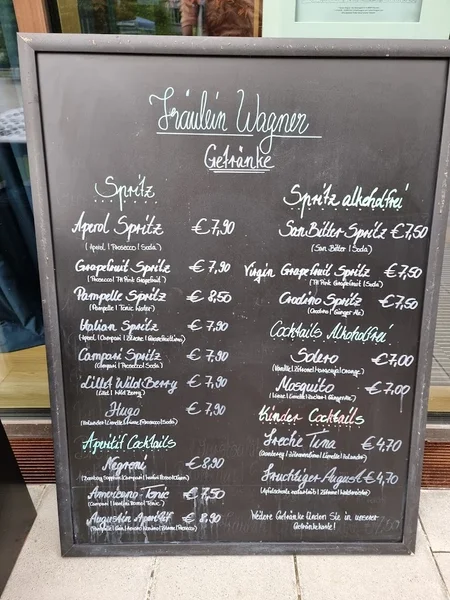 Fräulein Wagner
Getränke
Spritz
Aperol Spritz €7,90
(Aperol | Prosecco | Soda)
Grapefruit Spritz €7,90
(Prosecco | TH Pink Grapefruit)
Pampelle Spritz €8,50
(Pampelle | Tonic Water)
Italian Spritz €7,90
Campari Spritz €7,90
(Campari | Prosecco | Soda)
Lillet Wild Berry €7,90
(Lillet | Wild Berry)
Hugo €7,90
Aperitif Cocktails
Negroni €8,90
Americano-Tonic €7,50
Augusten Aperitif €8,90
Spritz alkoholfrei
San Bitter Spritz €7,50
(San Bitter | Soda)
Virgin Grapefruit Spritz €7,50
(TH Pink Grapefruit | Soda)
Crodino Spritz €7,50
(Crodino | Ginger Ale)
Cocktails Alkoholfrei
Solero €7,00
Nosquito €7,00
Kinder Cocktails
Freche Tuna €4,70
Fruchtiger August €4,70
Weitere Getränke finden Sie in unserer
Getränkekarte!